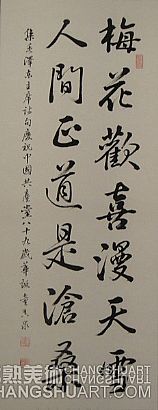 梅花歡喜漫天雪
人間正道是滄桑
集毛澤東主席詩句慶祝中國共產黨八十九歲華誕
HANGSHUART